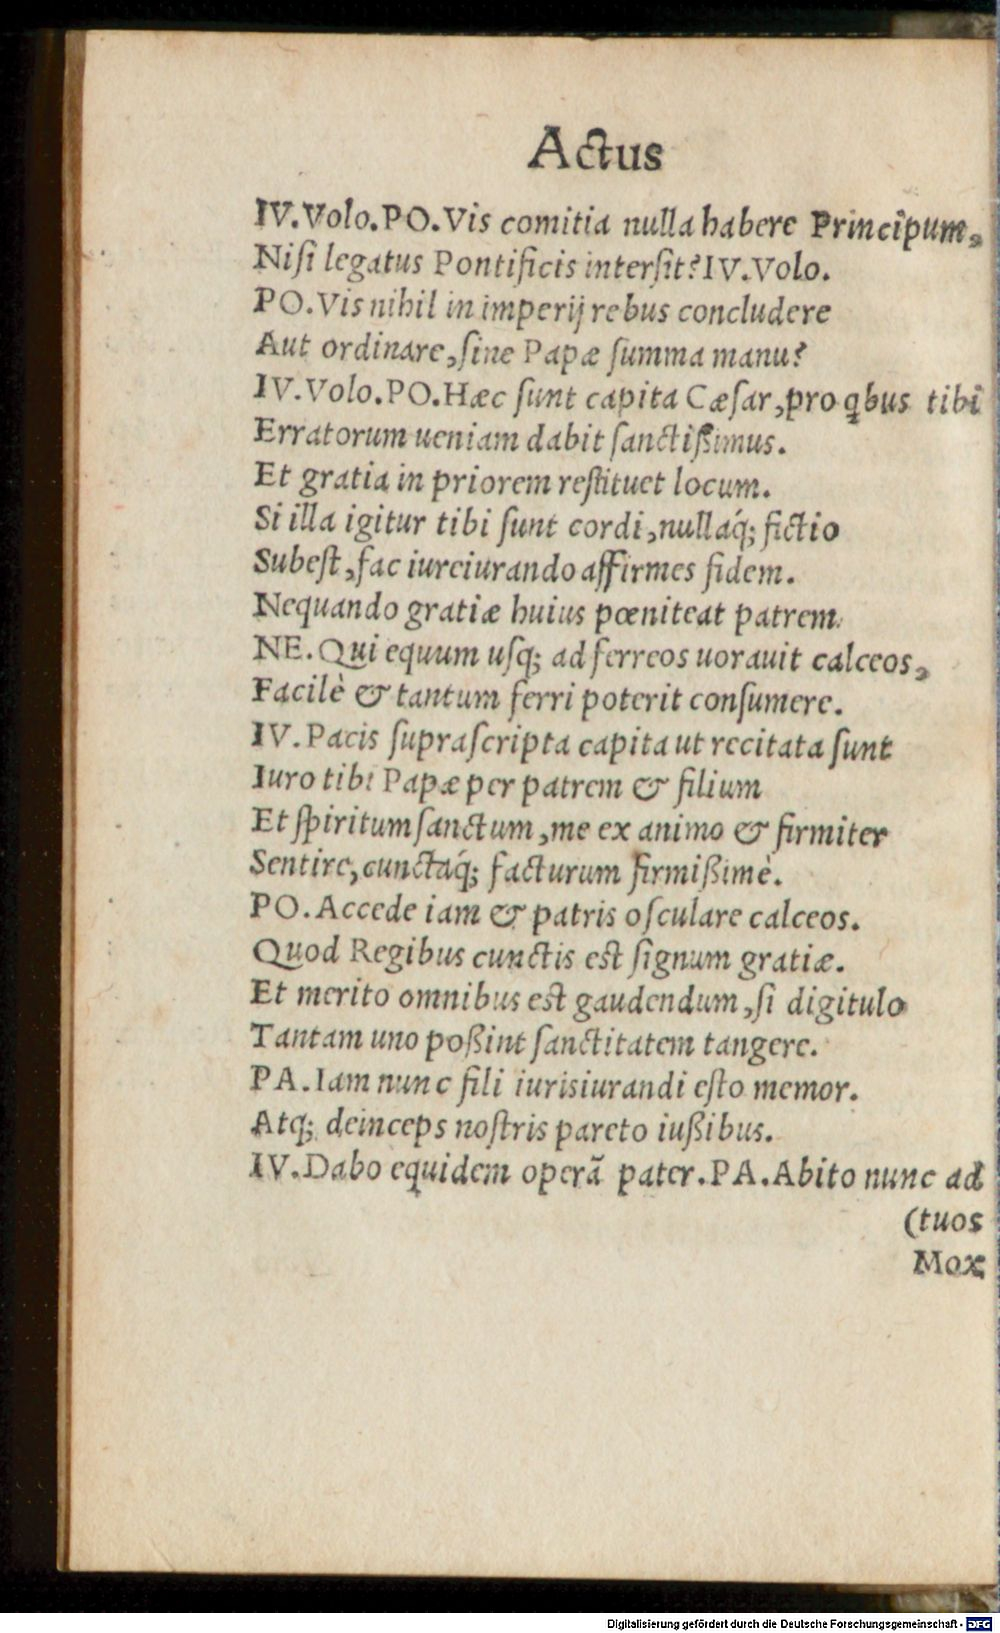 Actus
IV.Volo.PO.Vis comitia nulla habere Principum,
Nisi legatus Pontificis intersit?IV.Volo.
PO.Vis nihil in imperij rebus concludere
Aut ordinare,sine Papæ summa manu?
IV.Volo.PO.Hæc sunt capita Cæsar,pro qbus tibi
Erratorum ueniam dabit sanctißimus.
Et gratia in priorem restituet locum.
Si illa igitur tibi sunt cordi,nullaq́; fictio
Subest,fac iureiurando affirmes fidem.
Nequando gratiæ huius pœniteat patrem.
NE.Qui equum usq; ad ferreos uorauit calceos,
Facilè & tantum ferri poterit consumere.
IV.Pacis suprascripta capita ut recitata sunt
Iuro tibi Papæ per patrem & filium
Et spiritum sanctum,me ex animo & firmiter
Sentire,cunctaq́; facturum firmißimè.
PO.Accede iam & patris osculare calceos.
Quod Regibus cunctis est signum gratiæ.
Et merito omnibus est gaudendum,si digitulo
Tantam uno poßint sanctitatem tangere.
PA.Iam nunc fili iurisiurandi esto memor.
Atq; deinceps nostris pareto iußibus.
IV.Dabo equidem operã pater.PA.Abito nunc ad
(tuos
Mox
Digitalisierung gefördert durch die Deutsche Forschungsgemeinschaft - DFG